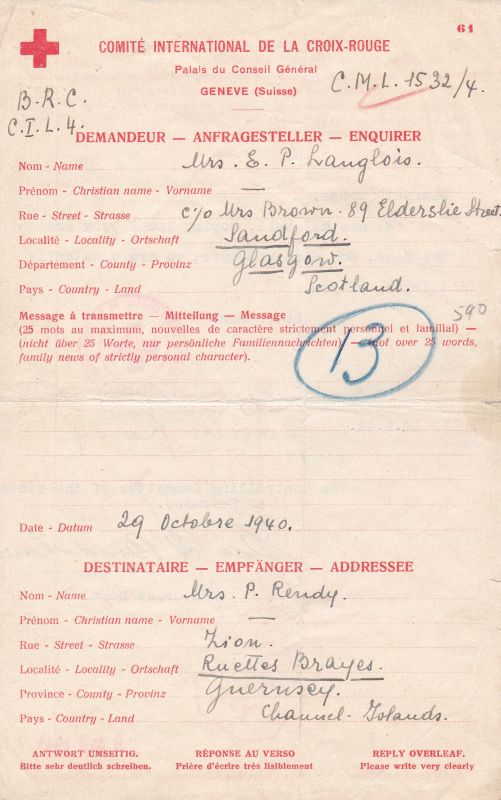 61
COMITÉ INTERNATIONAL DE LA CROIX-ROUGE
Palais du Conseil Général
GENEVE (Suisse)
C.M.L. 1532/4.
B.R.C.
C.I.L.4.
DEMANDEUR — ANFRAGESTELLER — ENQUIRER
Nom - Name Mrs. E. P. Langlois.
Prénom - Christian name - Vorname —
Rue - Street - Strasse c/o Mrs Brown. 89 Elderslie Street.
Localité - Locality - Ortschaft Sandford.
Département - County - Provinz Glasgow.
Pays - Country - Land Scotland.
Message à transmettre — Mitteilung — Message 590
(25 mots au maximum, nouvelles de caractère strictement personnel et familial) —
(nicht über 25 Worte, nur persönliche Familiennachrichten) — not over 25 words,
family news of strictly personal character).
13
Date - Datum 29 Octobre 1940.
DESTINATAIRE — EMPFÄNGER — ADDRESSEE
Nom - Name Mrs. P. Rendy.
Prénom - Christian name - Vorname —
Rue - Street - Strasse Zion.
Localité - Locality - Ortschaft Ruettes Brayes.
Province - County - Provinz Guernsey.
Pays - Country - Land Channel-Islands.
ANTWORT UMSEITIG. RÉPONSE AU VERSO REPLY OVERLEAF.
Bitte sehr deutlich schreiben. Prière d'écrire très lisiblement Please write very clearly